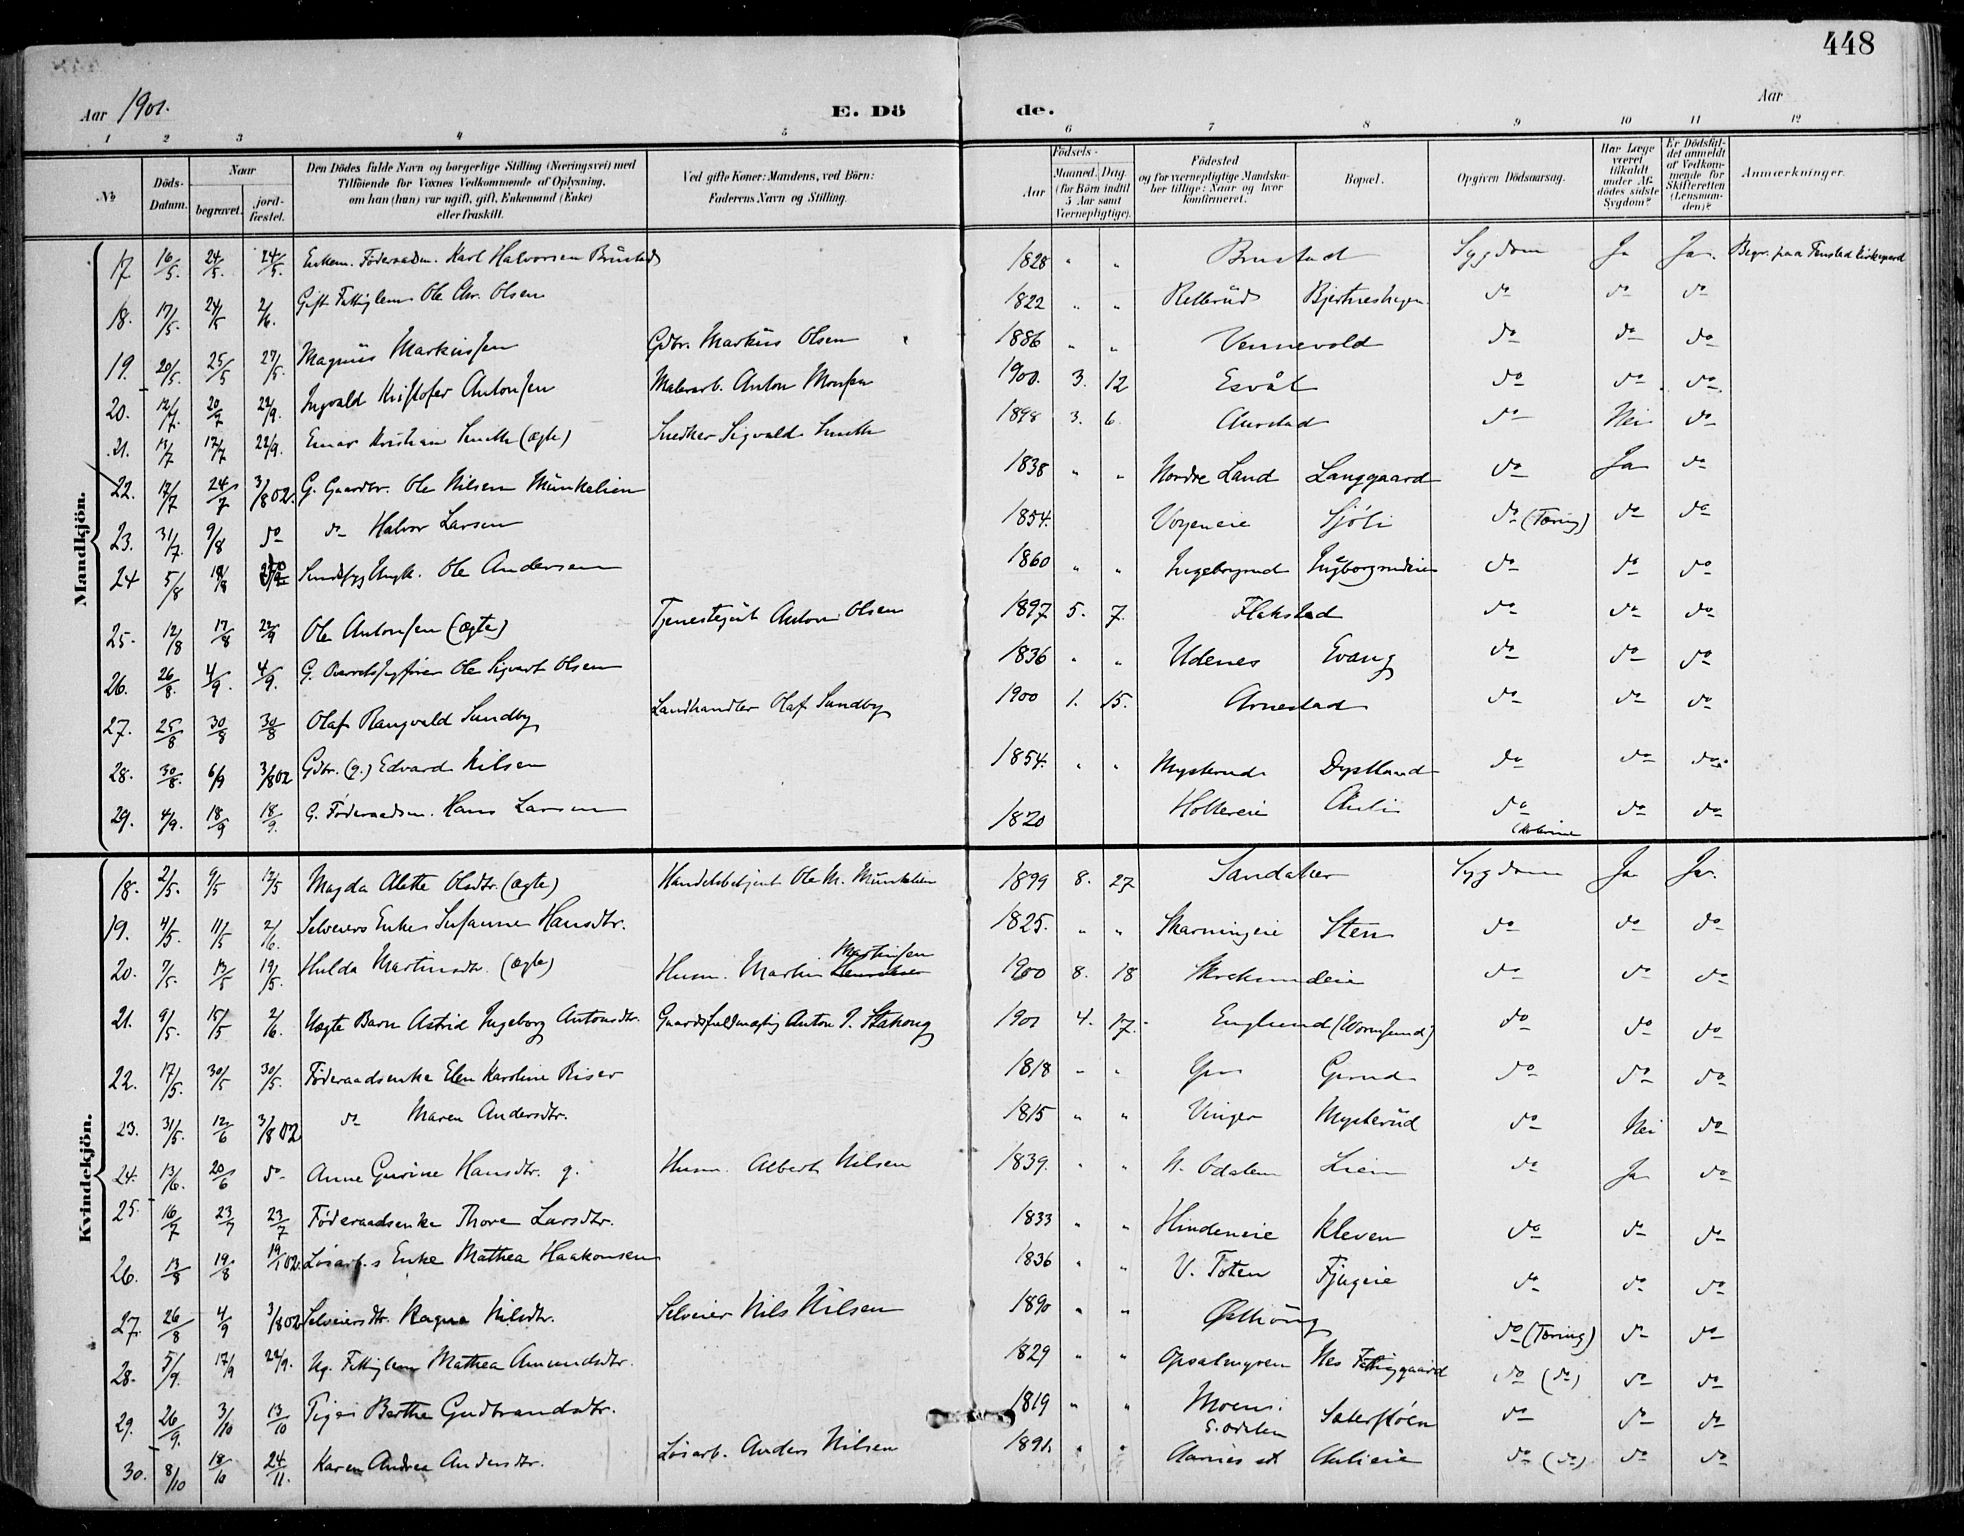 448
Aar 1901. E. Dö de. Aar
1 2 3 4 5 6 7 8 9 10 11 12
No Döds-Datum. Naar begravet. jord-fæstet. Den Dödes fulde Navn og borgerlige Stilling (Næringsvei) med Tilföiende for Voxnes Vedkommende af Oplysning, om han (hun) var ugift, gift, Enkemand (Enke) eller fraskilt. Ved gifte Koner: Mandens, ved Börn: Faderens Navn og Stilling. Födsels- Aar Maaned. Dag. (for Börn indtil 5 Aar samt Værnepligtige). Födested og for værnepligtige Mandska-ber tillige: Naar og hvor konfirmeret. Bopæl. Opgiven Dödsaarsag. Har Læge været tilkaldt under Af-dödes sidste Sygdom? Er Dödsfal-det anmeldt af Vedkom-mende for Skifteretten (Lensman-den)? Anmærkninger.
Mandkjön.
17 16/5. 24/5. 24/5. Enkem. Föderaadm. Karl Halvorsen Brustad 1828 " " Brustad Sygdom Ja Ja. Begr. paa Fenstad Kirkegaard
18. 17/5. 24/5 2/6. Gift Fattiglem Ole Chr. Olsen 1822 " " Rellerud Bjertneshagen do do do
19. 20/5. 25/5 27/5. Magnus Markussen Gdbr. Markus Olsen 1886 " " Vennevold do do do
20. 12/7. 20/7 22/9. Ingvald Kristofer Antonsen Malerarb. Anton Monsen 1900. 3. 12 Esvål do do do
21. 13/7 17/7 22/9. Einar Kristian Smith (ægte) Snedker Sigvald Smith 1898 3. 6. Aurstad do Nei do
22. 17/7 24/7 3/8 02. G. Gaardbr. Ole Nilsen Munkelien 1838 " " Nordre Land Langgaard do Ja do
23. 31/7. 9/8 do do Halvor Larsen 1854. Vogeneie Sjöli do (Tæring) do do
24 5/8 19/8 Sindssyg Ungk. Ole Andersen 1860 " " Ingeborgrudeie do do do
25. 12/8 17/8 22/9 Ole Antonsen (ægte) Tjenestegut Anton Olsen 1897 5. 7. Flakstad do do do
26. 26/8. 4/9. 4/9. G. Overretssagfører Ole Sigvart Olsen 1836 " " Udenes Evang do do do
27. 25/8 30/8 30/8 Olaf Rangvald Sundby Landhandler Olaf Sundby 1900 1. 15. Arnestad do do do
28. 30/8. 6/9 3/8 02 Gdbr. (g.) Edvard Nilsen 1854. " " Mysterud Dystland do do do
29. 4/9. 18/9 18/9. G. Föderaadsm. Hans Larsen 1820 Holtereie Auli do do do
Kvindekjön.
18. 2/5. 9/5 17/5 Magda Alette Olsdtr. (ægte) Handelsbetjent Ole M. Munkelien 1899 8. 27 Sandaker Sygdom Ja Ja.
19. 4/5. 11/5 2/6. Selveiers Enke Susanne Hansdtr. 1825. " " Skarningeie Sten do do do
20. 7/5. 13/5 19/5. Hulda Martinsdtr. (ægte) Husm. Martin Martinsen 1900 8. 18 do do do
21. 9/5. 15/5 2/6. Uægte Barn Astrid Ingeborg Antonsdtr. Gaardsfuldmægtig Anton J. Stahong 1901 4. 17. Englund (Wormsund) do do do
22. 17/5. 30/5 30/5. Föderaadsenke Elen Karoline Riser 1818 " " Grud do do do
23. 31/5. 12/6 3/8 02 do Maren Andersdtr. 1815 " " Vinger Mysterud do Nei do
24. 13/6. 20/6 do Anne Gurine Hansdtr. g. Husm. Albert Nilsen 1839. " " N. Odalen Lien do Ja do
25. 16/7 23/7 23/7 Föderaadsenke Thore Larsdtr. 1833 " " Hindeneie Kleven do do do
26. 13/8 19/8 19/1 02. Løsarb.s Enke Mathea Haakonsen 1836 " " V. Toten Fjugeie do do do
27. 26/8 4/9 3/8 02 Selveiersdtr. Ragna Nilsdtr. Selveier Nils Nilsen 1890 " " Østhöug do (Tæring) do do
28. 5/9. 17/9 22/9. Ug. Fattiglem Mathea Amundsdtr. 1829 " " Opsalmyren Nes Fattiggaard do (do) do do
29. 26/9. 3/10 13/10 Pige Berthe Gudbrandsdtr. 1819 " " Moen i S. Odalen Sæterstöen do do do
30. 8/10 18/10 24/11. Karen Andrea Andersdtr. Løsarb. Anders Nilsen 1891. " " Aarnes st. Aulieie do (do) do do